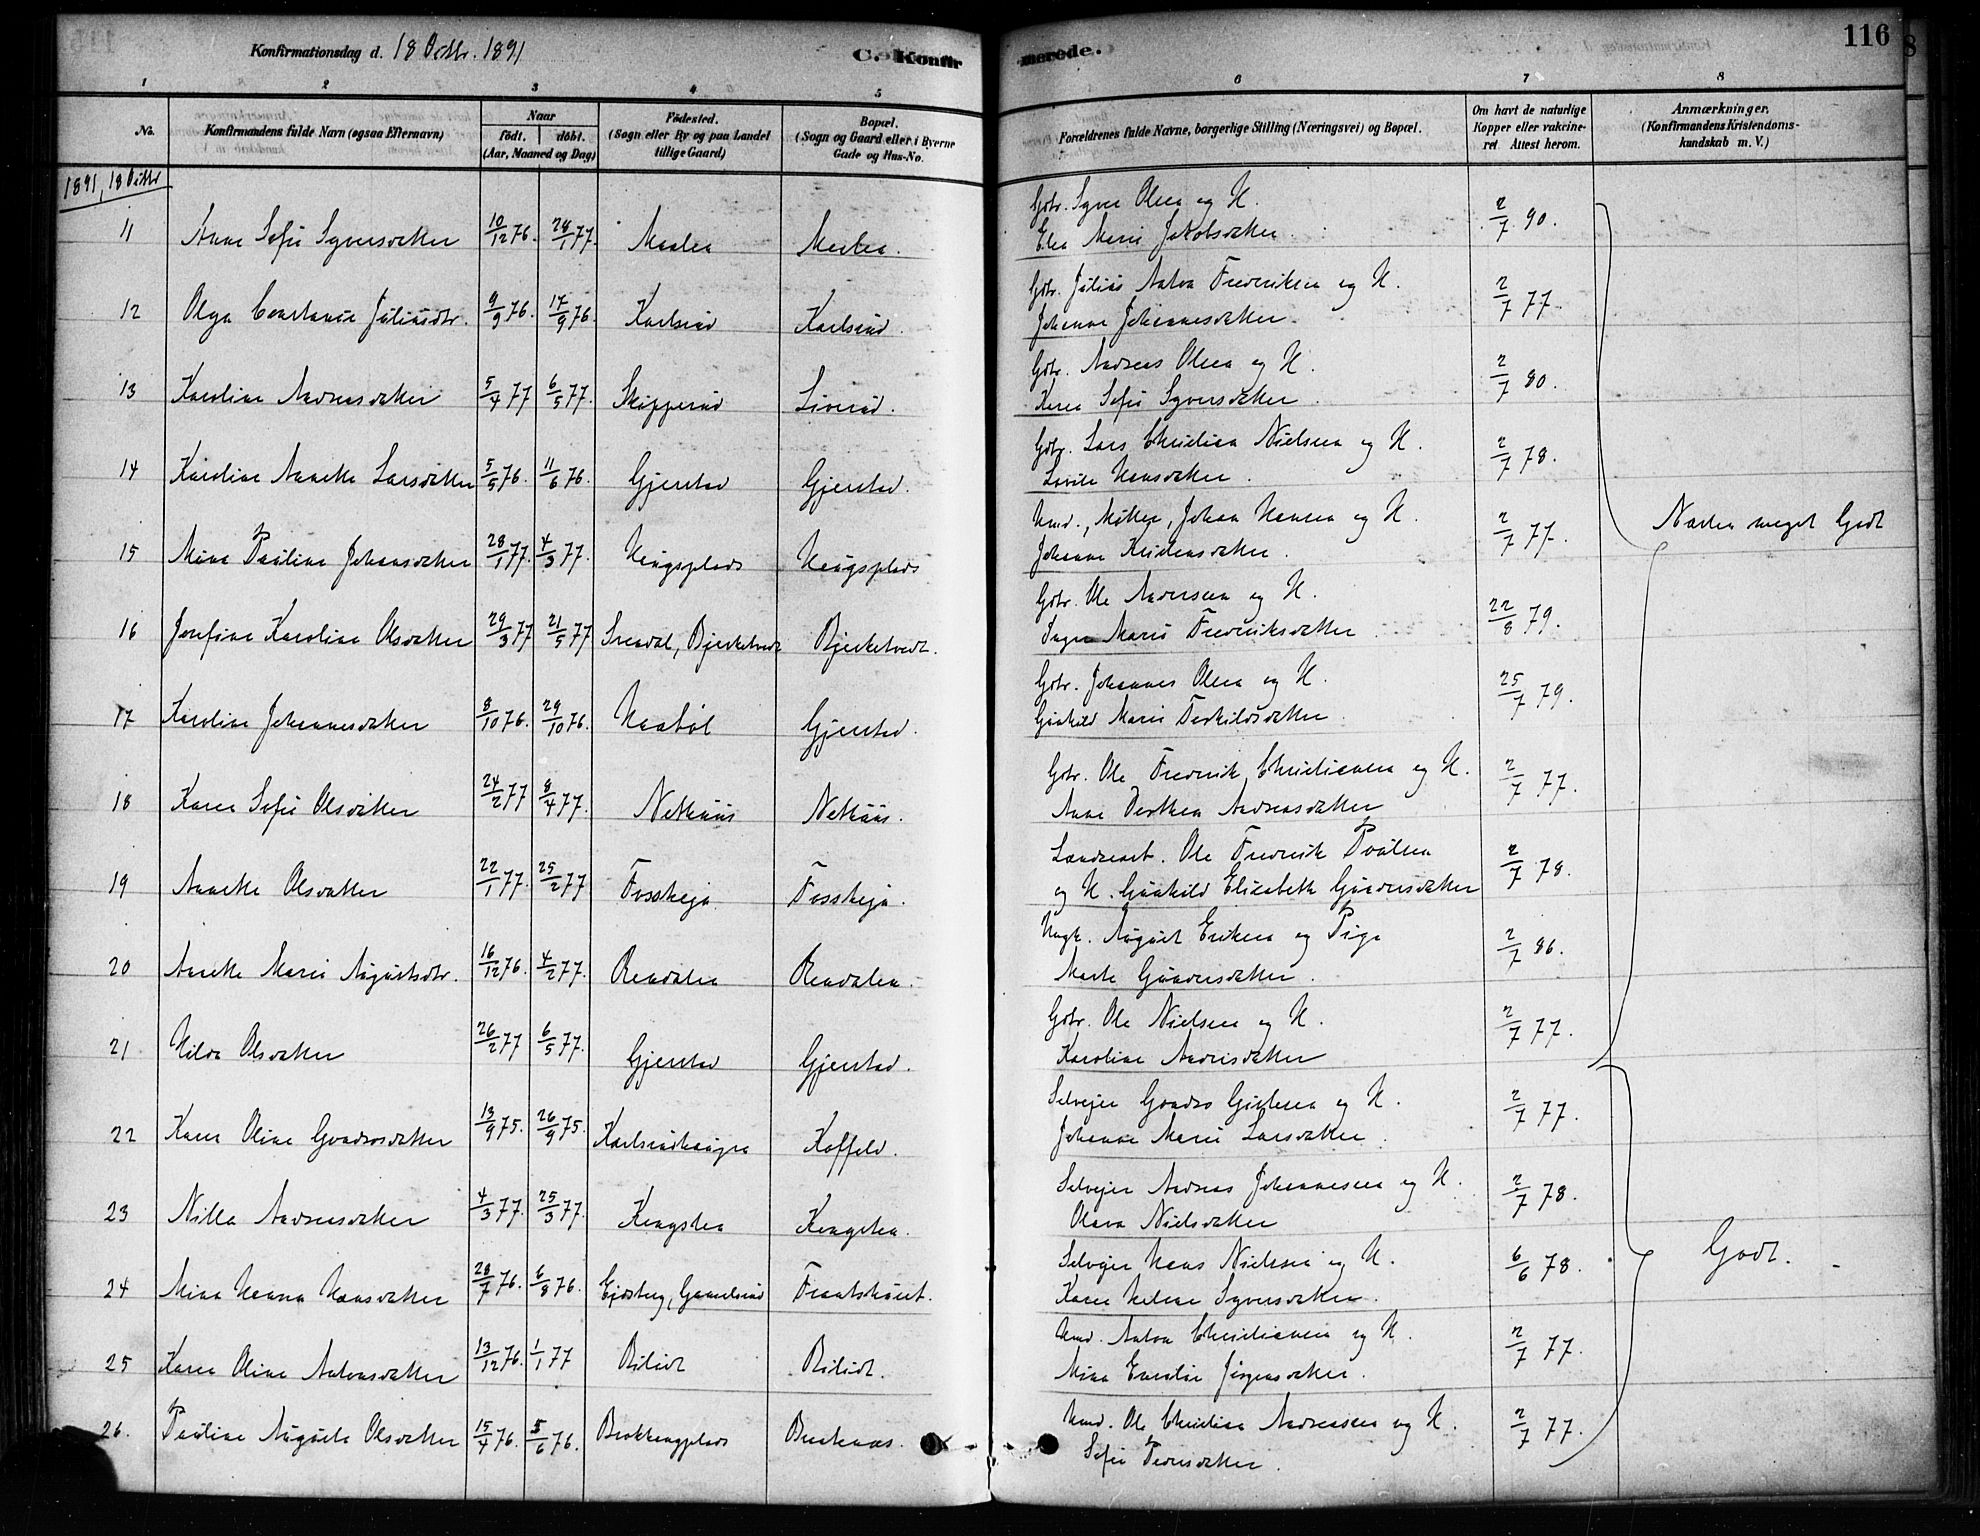 Konfirmationsdag d. 18 Octbr. 1891
C. Konfirmerede.
116
1 2 3 4 5 6 7 8
No.
Konfirmandens fulde Navn (ogsaa Efternavn)
Naar
født. døbt.
(Aar, Maaned og Dag)
Fødested.
(Sogn eller By og paa Landet
tillige Gaard)
Bopæl.
(Sogn og Gaard eller i Byerne
Gade og Hus-No.
Forældrenes fulde Navne, borgerlige Stilling (Næringsvei) og Bopæl.
Om havt de naturlige
Kopper eller vakcine-
ret Attest herom.
Anmærkninger.
(Konfirmandens Kristendoms-
kundskab m. V.)
1891, 18 Octbr
11 Anne Sofie Syversdatter 10/12 76. 28/1 77. Maslea Maslea. Gbr. Syver Olsen og H. 2/7 90.
Elen Marie Jakobsdatter.
12 Olga Constance Juliusdtr. 9/9 76. 17/9 76. Karlsrud Karlsrud. Gbr. Julius Anton Fredriksen og H. 2/7 77.
Johanne Johannesdatter.
13 Karoline Andreasdatter 5/4 77 6/5 77. Skipperud Liverud. Gbr. Andreas Olsen og H. 2/7 80.
Karen Sofie Syversdatter.
14 Karoline Annette Larsdatter 5/5 76. 11/6 76. Gjerstad Gjerstad. Gbr. Lars Christian Nielsen og H. 2/7 78.
Lovise Hansdatter.
15 Mina Pauline Johansdatter 28/1 77. 4/3 77. Haugsplads Haugsplads Hmd., Møller, Johan Hansen og H. 2/7 77.
Johanne Kristensdatter.
Næsten meget Godt
16 Josefine Karoline Olsdatter 29/3 77 21/5 77 Svendal, Bjerketvedt Bjerketvedt. Gbr. Ole Andersen og H. 22/8 79.
Inger Marie Fredriksdatter
17 Karoline Johannesdatter 8/10 76. 29/10 76. Haabøl Gjerstad. Gbr. Johannes Olsen og H. 25/7 79.
Gunhild Marie Torkildsdatter
18 Karen Sofie Olsdatter 24/2 77 8/4 77. Nethuus Nethuus. Gbr. Ole Fredrik Christiansen og H. 2/7 77.
Anne Dorthea Andreasdatter
19 Annette Olsdatter 22/1 77. 25/2 77 Fossheja Fossheja. Ole Fredrik Poulsen 2/7 78.
og H. Gunhild Elisabeth Gundersdatter
20 Anette Marie Augustsdtr. 16/12 76. 4/2 77. Rendalen Rendalen. Ungk. August Eriksen og Pige 2/7 86.
Marte Gundersdatter.
21 Hilda Olsdatter 26/2 77 6/5 77. Gjerstad Gjerstad. Gbr. Ole Nielsen og H. 2/7 77.
Karoline Andrisdatter
22 Karen Oline Gundrosdatter 13/9 75. 26/9 75. Karlsrudhaugen Koffeld. Selvejer Gundro Gislesen og H. 2/7 77.
Johanne Marie Larsdatter.
23 Nilla Andreasdatter 4/3 77. 25/3 77. Krogsten Krogsten. Selvejer Andreas Johannesen og H. 2/7 78.
Olava Nielsdatter
24 Mina Hanna Hansdatter 28/7 76. 6/8 76. Ejdsberg, Gammelsrud Frantshuset. Selvejer Hans Nielsen og H. 6/6 78. Godt.
Karen Helene Syversdatter.
25 Karen Oline Antonsdatter 13/12 76. 1/1 77 Bilidt Bilidt. Hmd. Anton Christiansen og H. 2/7 77.
Mina Emilie Jørgensdatter.
26. Pauline Augusta Olsdatter 15/4 76. 5/6 76. Hmd. Ole Christian Andreassen og H. 2/7 77.
Sofie Pedersdatter.